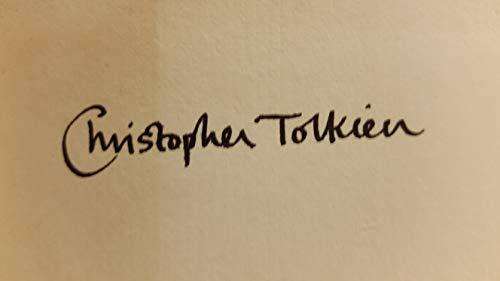 Christopher Tolkien